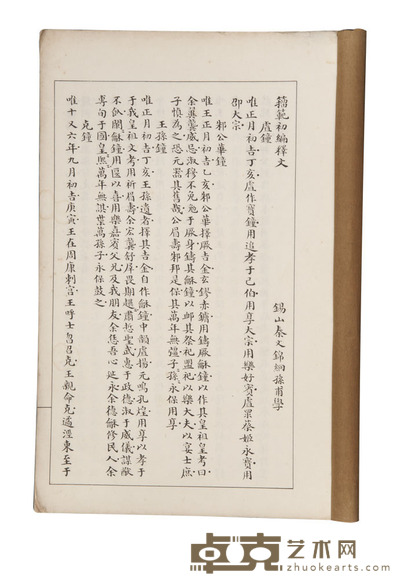 籀範初編釋文
錫山秦文錦絅孫甫學
虘鐘
唯正月初吉丁亥虘作寶鐘用追孝于己伯用享大宗用樂好賓虘眔蔡姬永寶用
邵大宗
邾公華鐘
唯王正月初吉乙亥邾公華擇厥吉金玄鏐赤鏞用鑄厥龢鐘以作其皇祖皇考曰
余畢龏威忌淑穆不㒸于厥身鑄其龢鐘以卹其祭祀盟祀以樂大夫以宴士庶
子慎為之聽元器其舊哉公眉壽邾邦是保其萬年無疆子孫永保用享
王孫鐘
唯正月初吉丁亥王孫遺者擇其吉金自作龢鐘中韻虘揚元鳴孔煌用享以孝
于我皇祖文考用祈眉壽余宏龏舒屖畏期趩肅悊聖武惠于政德淑于威儀謀猷
不飤闌龢鐘用匽以喜用樂嘉賓父兄及我朋友余恁台心延永余德龢修民人余
專旬于國皇熙萬年無諆枼萬孫子永保鼓之
克鐘
唯十又六年九月初吉庚寅王在周康剌宮王呼士曶召克王親命克遹涇東至于
卓克艺术网
www.zhuokearts.com